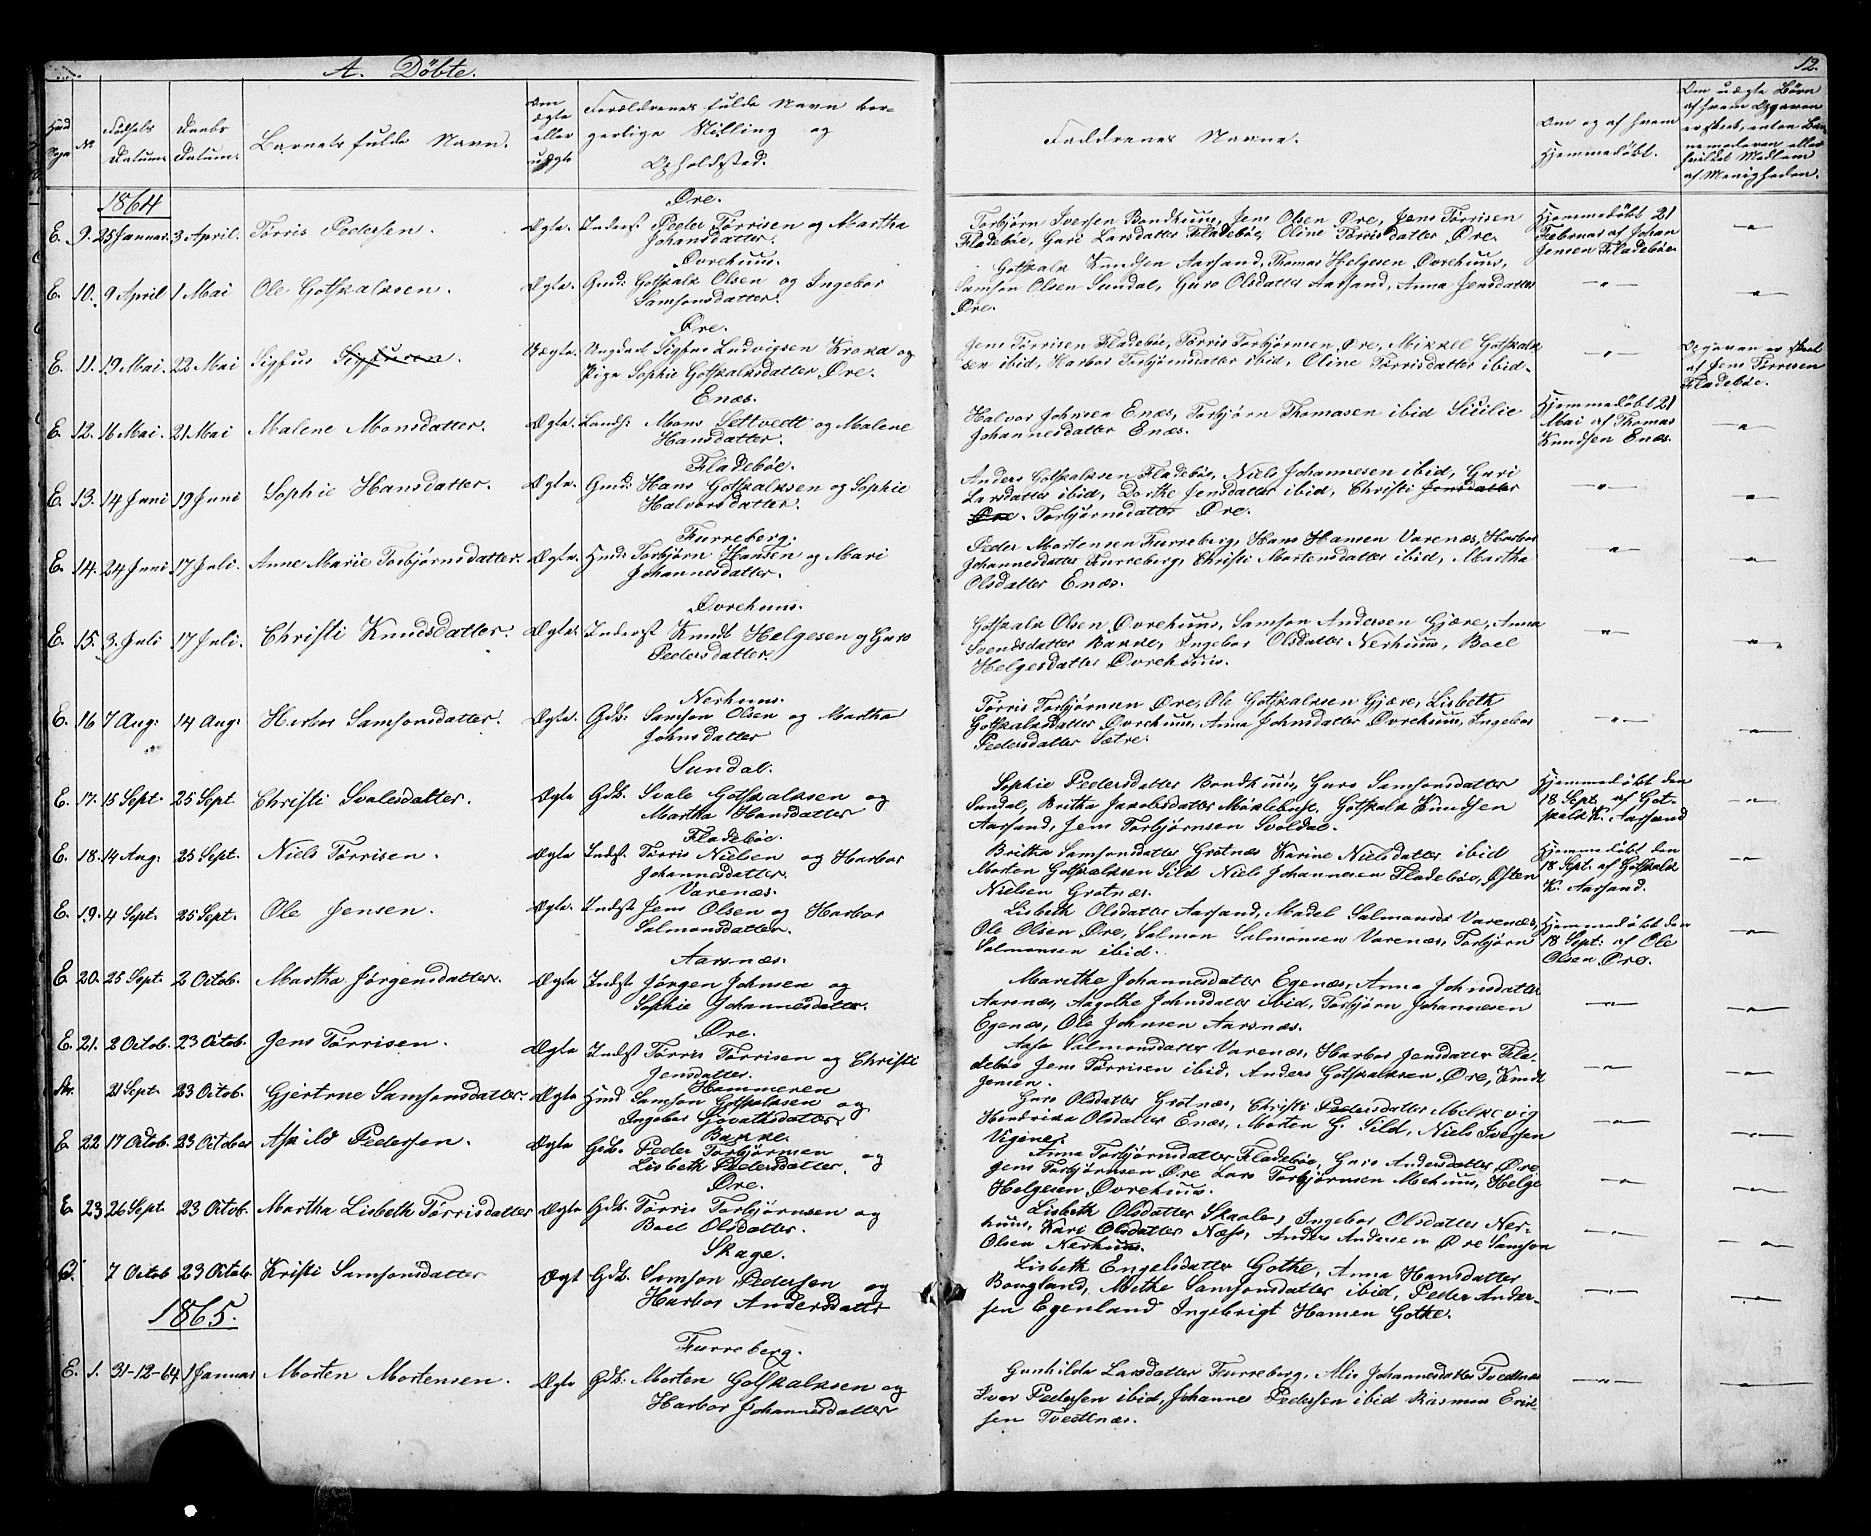 A. Døbte.
12.
No
Fødsels Datum.
Daabs Datum.
Barnets fulde Navn.
Om ægte eller uægte
Forældrenes fulde Navn borgerlige Stilling og Opholdsted.
Faddrenes Navne.
Om og af hvem Hjemmedøbt.
Om uægte Børn
1864
Øre.
E. 9. 25 Januar. 3 April. Tørris Pedersen. Ægte. Inderst Peder Tørrisen og Martha
Johansdatter.
Torbjørn Iversen Bondhuus, Jens Olsen Øre, Jens Tørrisen
Fladebøe, Guri Larsdatter Fladebøe, Oline Tørrisdatter Øre.
Hjemmedøbt 21
Februar af Johan
Jensen Fladebøe.
Øvrehuus.
E. 10. 9 April 1 Mai Ole Gotskalksen. Ægte. Gmd: Gotskalk Olsen og Ingebor
Samsonsdatter.
Gotskalk Knudsen Aarsand, Thomas Helgesen Øvrehuus,
Samson Olsen Sundal, Guro Olsdatter Aarsand, Anna Jensdatter
Øre.
Øre.
E. 11. 19 Mai. 22 Mai Sigfus Sigfusen. Uægte. Ungkarl Sigfus Ludvigsen Kroka og
Pige Sophie Gotskalksdatter Øre.
Jens Tørrisen Fladebøe, Tørris Torbjørnsen Øre, Mikkel Gotskalk
sen ibid, Harbor Torbjørnsdatter ibid, Oline Tørrisdatter ibid.
Opgaven er skeet
af Jens Tørrisen
Fladebøe.
Enæs.
E. 12. 16 Mai. 21 Mai Malene Monsdatter. Ægte. Lands: Mons Settvedt og Malene
Hansdatter.
Halvor Johnsen Enæs, Torbjørn Thomasen ibid Sicilie
Johannesdatter Enæs.
Hjemmedøbt 21
Mai af Thomas
Knudsen Enæs.
Fladebøe.
E. 13. 14 Juni 19 Juni Sophie Hansdatter. Ægte. Gmd: Hans Gotskalksen og Sophie
Halvorsdatter.
Anders Gotskalksen Fladebøe, Niels Johannesen ibid, Guri
Larsdatter ibid, Dorthe Jensdatter ibid, Christi Jensdatter
Øre. Torbjørnsdatter Øre.
Furreberg.
E. 14. 24 Juni 17 Juli. Anne Marie Torbjørnsdatter. Ægte. Hmd: Torbjørn Hansen og Mari
Johannesdatter.
Peder Mortensen Furreberg, Hans Hansen Varenæs, Harbor
Johannesdatter Furreberg, Christi Mortensdatter ibid, Martha
Olsdatter Enæs.
Øvrehuus.
E. 15. 3. Juli 17 Juli. Christi Knudsdatter. Ægte. Inderst Knudt Helgesen og Guro
Pedersdatter.
Gotskalk Olsen Øvrehuus, Samson Andersen Gjære, Anna
Svendsdatter Bakke, Ingebor Olsdatter Nerhuus, Boel
Helgesdatter Øvrehuus.
Nerhuus.
E. 16 7 Aug: 14 Aug: Herbor Samsonsdatter. Ægte. Gdb: Samson Olsen og Martha
Johnsdatter
Tørris Torbjørnsen Øre, Ole Gotskalksen Gjære, Lisbeth
Gotskalksdatter Øvrehuus, Anna Johnsdatter Øvrehuus, Ingebor
Pedersdatter Sætre.
Sundal.
E. 17. 15 Sept. 25 Sept. Christi Svalesdatter. Ægte Gdb. Svale Gotskalksen og
Martha Hansdatter
Sophie Pedersdatter Bondhuus, Guro Samsonsdatter
Sundal, Britha Jakobsdatter Møklebust, Gotskalk Knudsen
Aarsand, Jens Torbjørnsen Svoldal.
Hjemmedøbt den
18 Sept. af Got-
skalk K. Aarsand
Fladebøe.
E. 18. 14 Aug: 25 Sept. Niels Tørrisen. Ægte Indst. Tørris Nielsen og Harbor
Johannesdatter.
Britha Samsonsdatter Grotnæs Karine Nielsdatter ibid
Morten Gotskalksen Sild Niels Johannesen Fladebøe, Østen
Nielsen Grotnæs.
Hjemmedøbt den
18 Sept. af Gotskalk
K. Aarsand.
Varenæs.
E. 19. 4 Sept. 25 Sept. Ole Jensen. Ægte. Indst. Jens Olsen og Harbor
Salmonsdatter.
Lisbeth Olsdatter Aarsand, Madel Salmonsd Varenæs,
Ole Olsen Øre, Salmon Salmonsen Varenæs, Torbjørn
Salmonsen ibid.
Hjemmedøbt den
18 Sept: af Ole
Olsen Øre.
Aarsnæs.
E. 20. 25 Sept. 2 Octob. Martha Jørgensdatter. Ægte Indst Jørgen Johnsen og
Sophie Johannesdatter.
Marethe Johannesdatter Egenæs, Anna Johnsdatter
Aarsnæs, Aagothe Johnsdatter ibid, Torbjørn Johannesen
Egenæs, Ole Johnsen Aarsnæs.
Øre.
E. 21. 2 Octob. 23 Octob. Jens Tørrisen. Ægte Indst Tørris Tørrisen og Christi
Jensdatter.
Aasa Salmonsdatter Varenæs, Harbor Jensdatter Fla-
debøe Jens Tørrisen ibid, Anders Gotskalksen Øre, Knudt
Jensen.
Hammeren
21 Sept. 23 Octob. Gjertrue Samsonsdatter. Ægte Hmd Samson Gotskalksen og
Ingebor
Guro Olsdatter Grotnæs, Christi Pedersdatter Melkevig
Hendrika Olsdatter Enæs, Morten G. Sild, Niels Iversen
Vignes.
Bakke.
E 22 17 Octob. 23 October Askild Pedersen. Ægte Gdb. Peder Torbjørnsen og
Lisbeth Pedersdatter.
Anna Torbjørnsdatter Fladebøe, Guro Andersdatter Øre
Jens Torbjørnsen Øre Lars Torbjørnsen Mehuus, Helge
Helgesen Øvrehuus.
Øre.
E. 23 26 Sept. 23 Octob. Martha Lisbeth Tørrisdatter Ægte Gdb. Tørris Torbjørnsen og
Boel Olsdatter.
Lisbeth Olsdatter Skaale, Ingebor Olsdatter Ner-
huus, Kari Olsdatter Næss, Anders Andersen Øre Samson
Olsen Nerhuus.
Skage.
7 Octob 23 Octob. Kristi Samsonsdatter Ægt Gdb. Samson Pedersen og
Harbor Andersdatter
Lisbeth Engelsdatter Gothe, Anna Hansdatter
Bougland, Methe Samsonsdatter ibid, Peder Ander-
sen Egenland Ingebrigt Hansen Gothe.
1865.
Furreberg.
E. 1. 31-12-64 1 Januar Morten Mortensen. Ægte Gdb. Morten Gotskalksen og
Harbor Johannesdatter
Gunhilda Larsdatter Furreberg, Alis Johannesdatter Tvedtnæs
Iver Pedersen ibid, Johannes Pedersen ibid Rasmus Erik-
sen Tvedtnæs.